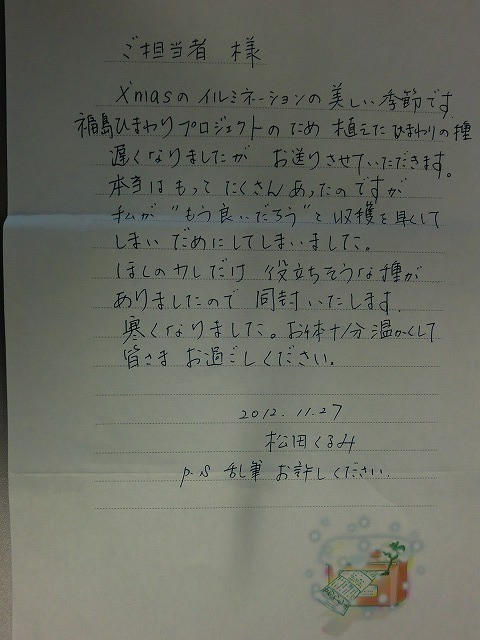 ご担当者 様
X'masのイルミネーションの美しい季節です
福島ひまわりプロジェクトのため 植えたひまわりの種
遅くなりましたが お送りさせていただきます。
本当はもっとたくさんあったのですが
私が"もう良いだろう"と収穫を早くして
しまい だめにしてしまいました。
ほんの少しだけ 役立ちそうな種が
ありましたので 同封いたします.
寒くなりました。お体十分温かくして
皆さま お過ごしください.
2012.11.27
松田くるみ
p.s 乱筆 お許しください.